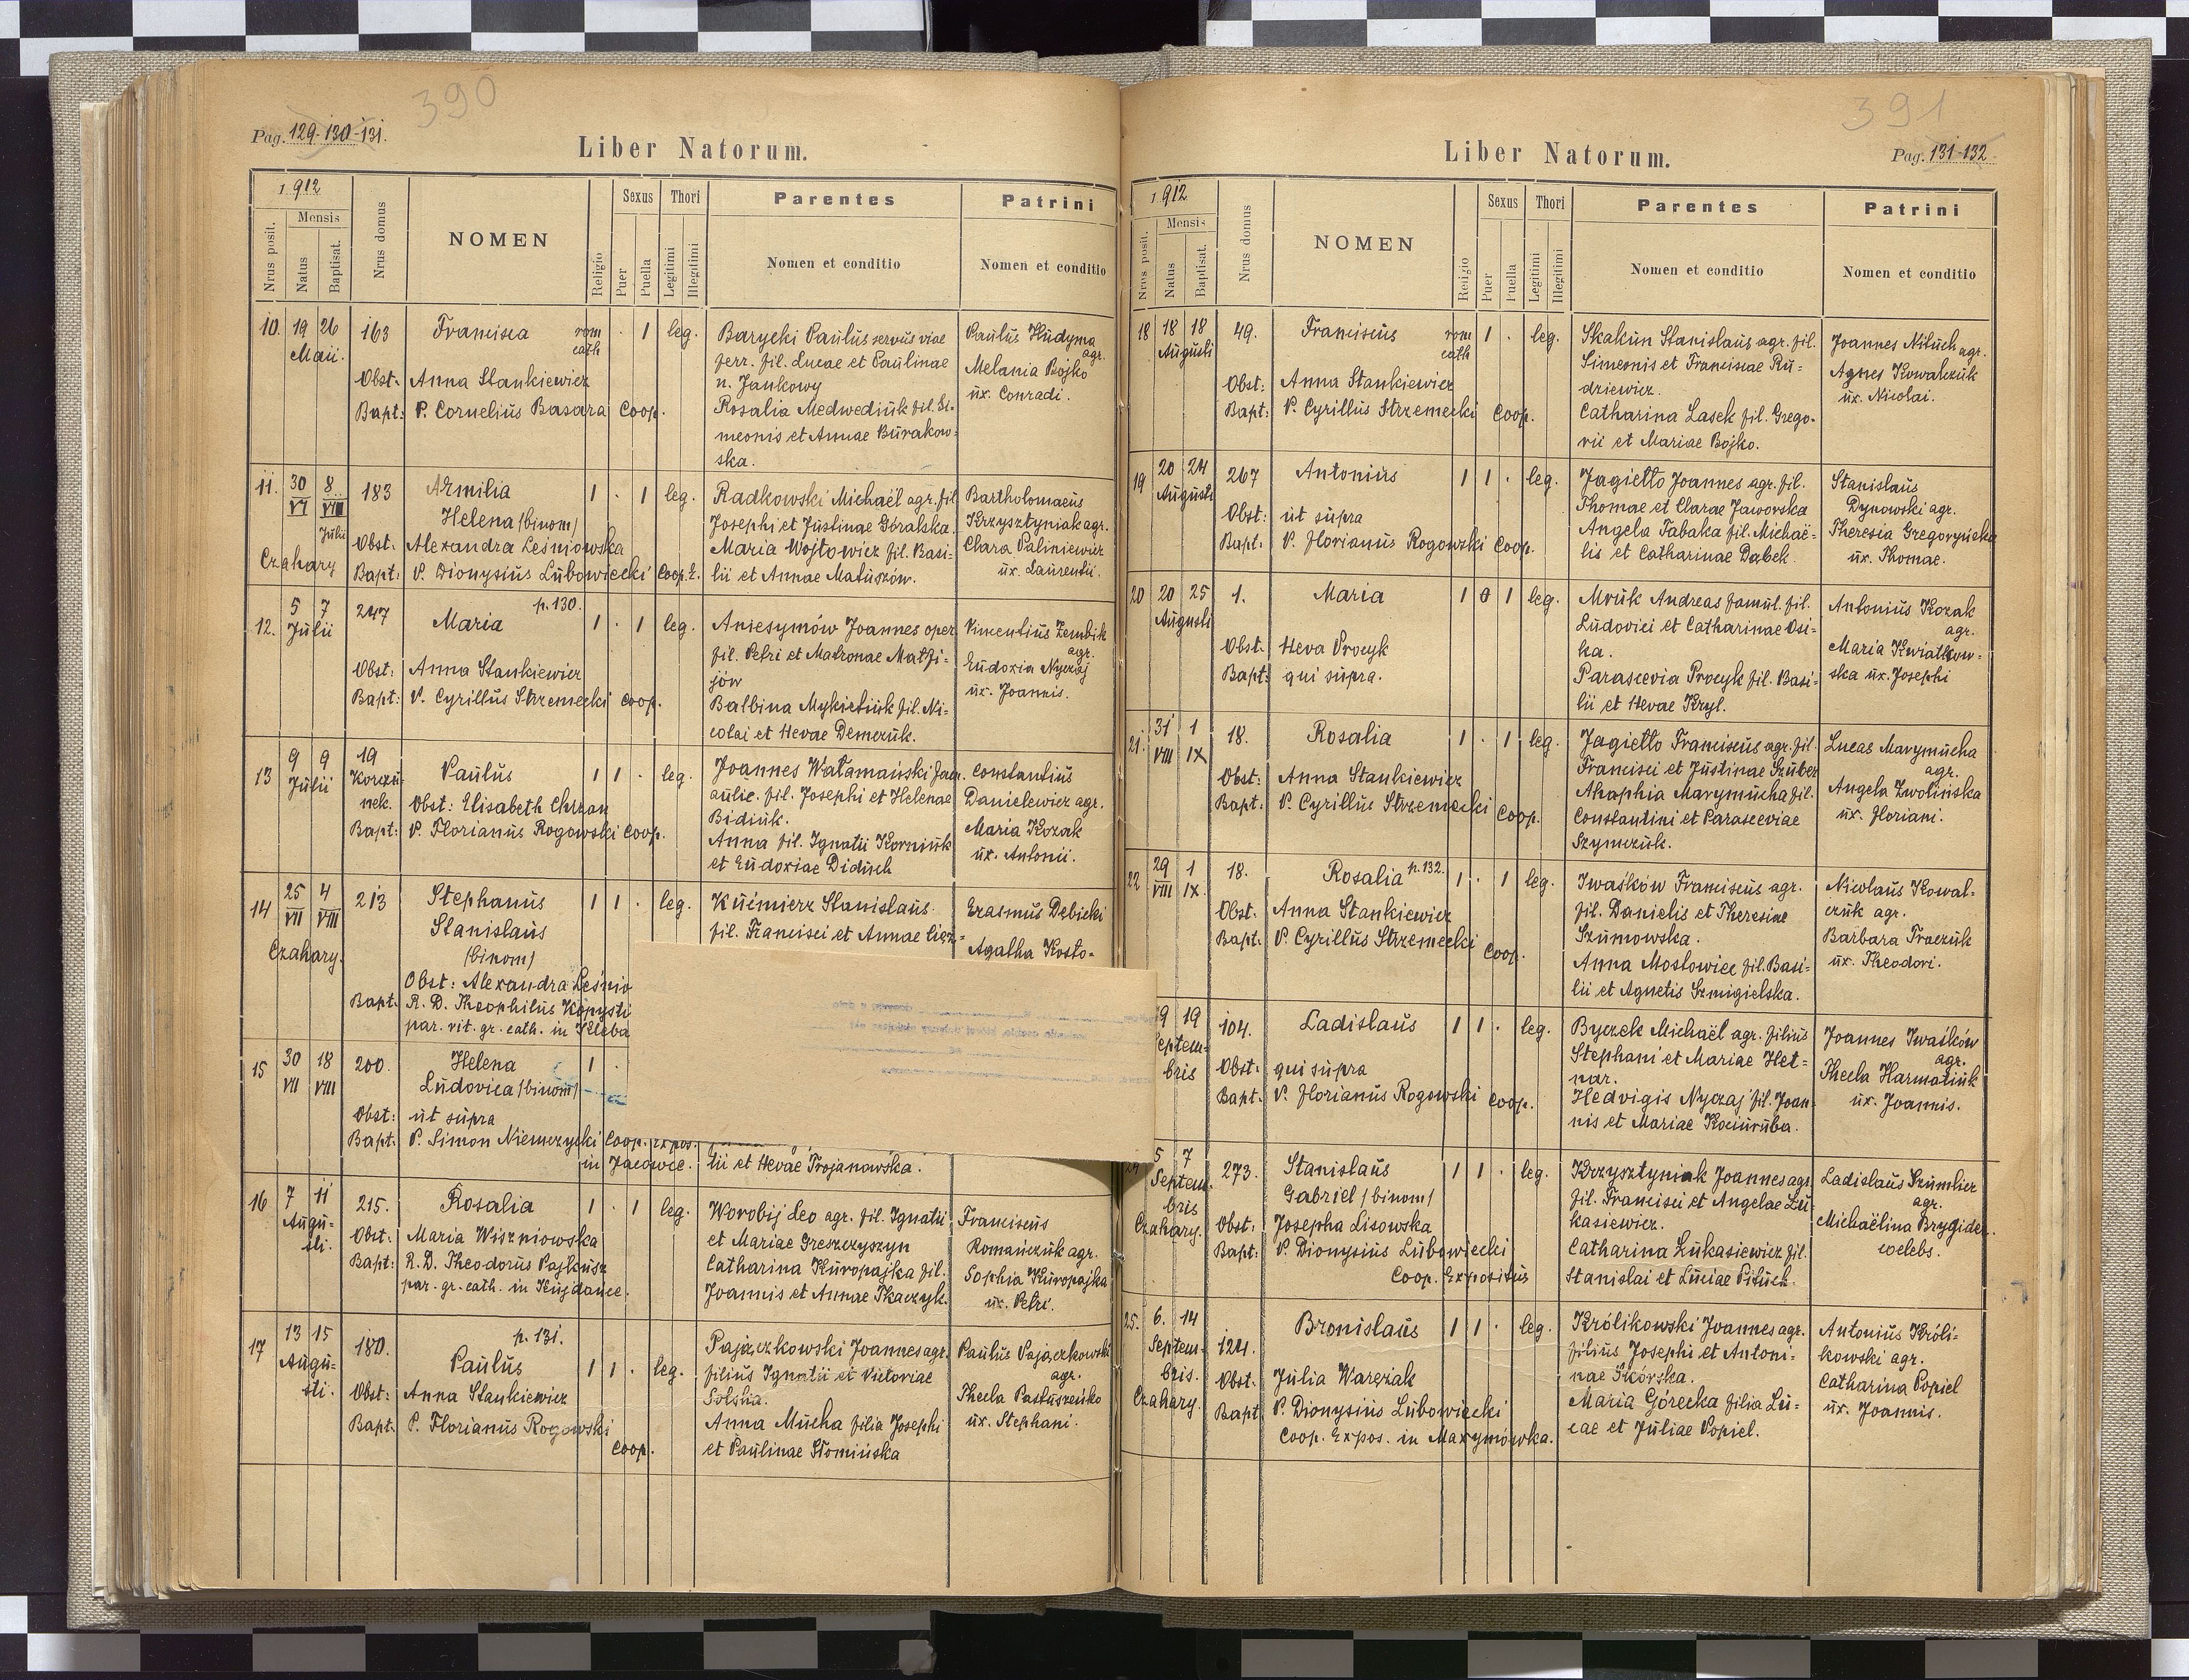 390
Pag. 129-130-131.
Liber Natorum.
1912
Nrus posit.
Mensis
Natus
Baptisat.
Nrus domus
NOMEN
Religio
Sexus
Puer
Puella
Thori
Legitimi
Illegitimi
Parentes
Nomen et conditio
Patrini
Nomen et conditio
10. 19 26 163 Francisca rom · 1 leg. Barycki Paulus servus viae Paulus Hudyma
Maii. cath ferr. fil. Lucae et Paulinae agr.
n. Jankowy Melania Bojko
Obst: Anna Stankiewicz Rosalia Medwediuk fil. Si- ux. Conradi.
Bapt: P. Cornelius Basara Coop. meonis et Annae Burakow-
ska.
11. 30 8 183 Armilia 1 · 1 leg. Radkowski Michaël agr. fil. Bartholomaeus
VI VIII Helena /binom/ Josephi et Justinae Góralska. Krzysztyniak agr.
Julii Obst: Alexandra Leśniowska Maria Wojtowicz fil. Basi- Clara Paliniewicz
Czahary Bapt: P. Dionysius Lubowiecki Coop. E. lii et Annae Matuszów. ux. Laurentii.
5 7 247 p. 130.
12. Julii Maria 1 · 1 leg. Aniesymów Joannes oper. Vincentius Zembik
fil. Petri et Matronae Matfi- agr.
Obst: Anna Stankiewicz jów Eudoxia Nyczaj
Bapt: P. Cyrillus Strzemecki Coop. Balbina Mykietiuk fil. Ni- ux. Joannis.
colai et Hevae Demczuk.
13 9 9 19 Paulus 1 1 · leg. Joannes Watamański fam. Constantius
Julii Korczu- aulic. fil. Josephi et Helenae Danielewicz agr.
nek. Obst: Elisabeth Chrzan Bidiuk. Maria Kozak
Bapt: P. Florianus Rogowski Coop. Anna fil. Ignatii Korniuk ux. Antonii.
et Eudoxiae Didiuch
14 25 4 213 Stephanus 1 1 · leg. Kuśmierz Stanislaus Erasmus Dębicki
VII VIII Stanislaus fil. Francisci et Annae
Czahary. /binom/ Agatha Kosto-
Obst: Alexandra Leśnio
Bapt: R. D. Theophilus Kopysti
par. rit. gr. cath. in Kleba
15 30 18 200. Helena 1 ·
VII VIII Ludovica /binom/
Obst: ut supra
Bapt: P. Simon Niemczycki Coop. Expos.
in Jacowce. lii et Hevae Trojanowska.
16 7 11 215. Rosalia 1 · 1 leg. Worobij Leo agr. fil. Ignatii Franciscus
Augu- Obst: Maria Wiszniowska et Mariae Greszczyszyn Romańczuk agr.
sti. Bapt: R. D. Theodorus Pajkusz Catharina Kuropajka fil. Sophia Kuropajka
par. gr. cath. in Kujdańce. Joannis et Annae Tkaczyk. ux. Petri.
17 13 15 180. p. 131.
Augu- Paulus 1 1 · leg. Pajączkowski Joannes agr. Paulus Pajączkowski
sti. filius Ignatii et Victoriae agr.
Obst: Anna Stankiewicz Solska. Thecla Pastuszeńko
Bapt: P. Florianus Rogowski Anna Mucha filia Josephi ux. Stephani.
Coop. et Paulinae Słomińska
391
Pag. 131-132
Liber Natorum.
1912
Nrus posit.
Mensis
Natus
Baptisat.
Nrus domus
NOMEN
Religio
Sexus
Puer
Puella
Thori
Legitimi
Illegitimi
Parentes
Nomen et conditio
Patrini
Nomen et conditio
18 18 18 49. Franciscus rom 1 · leg. Skakun Stanislaus agr. fil. Joannes Nituch agr.
Augusti cath Simeonis et Franciscae Ru- Agnes Kowalczuk
Obst: Anna Stankiewicz dziewicz. ux. Nicolai.
Bapt: P. Cyrillus Strzemecki Coop. Catharina Lasek fil. Grego-
rii et Mariae Bojko.
19 20 24 267 Antonius 1 1 · leg. Jagiełło Joannes agr. fil. Stanislaus
Augusti Thomae et Clarae Jaworska Dynowski agr.
Obst: ut supra Angela Tabaka fil. Michaë- Theresia
Bapt: P. Florianus Rogowski Coop. lis et Catharinae Dąbek. ux. Thomae.
20 20 25 1. Maria 1 0 1 leg. Mruk Andreas famul. fil. Antonius Kozak
Augusti Ludovici et Catharinae Osi- agr.
Obst: Heva Procyk ka. Maria Kwiatkow-
Bapt: qui supra. Parascevia Procyk fil. Basi- ska ux. Josephi
lii et Hevae Kryl.
21. 31 1 18. Rosalia 1 · 1 leg. Jagiełło Franciscus agr. fil. Lucas Marymucha
VIII IX Francisci et Justinae Szuber agr.
Obst: Anna Stankiewicz Ahaphia Marymucha fil. Angela Zwolińska
Bapt: P. Cyrillus Strzemecki Coop. Constantini et Parasceviae ux. Floriani.
Szymczuk.
22 29 1 18. Rosalia p. 132. 1 · 1 leg. Iwaśków Franciscus agr. Nicolaus Kowal-
VIII IX. fil. Danielis et Theresiae czuk agr.
Obst: Anna Stankiewicz Szumowska. Barbara Traczuk
Bapt: P. Cyrillus Strzemecki Coop. Anna Mostowiec fil. Basi- ux. Theodori.
lii et Agnetis Szmigielska.
9 19 104. Ladislaus 1 1 · leg. Byczek Michaël agr. filius Joannes Iwaśków
eptem- Stephani et Mariae Het- agr.
bris Obst: qui supra nar. Thecla Harmatiuk
Bapt: P. Florianus Rogowski Coop. Hedvigis Nyczaj fil. Joan- ux. Joannis.
nis et Mariae Kociuruba.
5 7 273. Stanislaus 1 1 · leg. Krzysztyniak Joannes agr. Ladislaus Szumlier
Septem- Gabriel /binom/ fil. Francisci et Angelae Łu- agr.
bris Obst: Josepha Lisowska kasiewicz. Michaëlina Brygider
Czahary. Bapt: P. Dionysius Lubowiecki Catharina Łukasiewicz fil. coelebs.
Coop. Expositus Stanislai et Luciae Pituch.
25. 6. 14 124. Bronislaus 1 1 · leg. Królikowski Joannes agr. Antonius Króli-
Septem- filius Josephi et Antoni- kowski agr.
bris. Obst: Julia Waręzak nae Skórska. Catharina Popiel
Czahary. Bapt P. Dionysius Lubowiecki Maria Górecka filia Lu- ux. Joannis.
Coop. Expos. in Maxymówka. cae et Juliae Popiel.